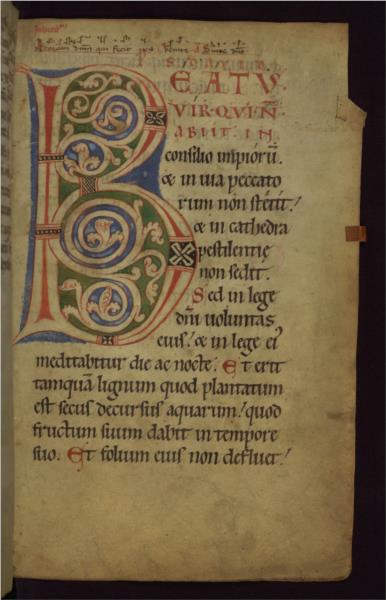 BEATVS
VIR·QVI Ñ
ABIIT·IN
consilio impiorū.
& in uia peccato
rum non stetit!
& in cathedra
pestilentie
non sedit.
Sed in lege
dñi uoluntas
eius! & in lege ei'
meditabitur die ac nocte. Et erit
tamquā lignum quod plantatum
est secus decursus aquarum! quod
fructum suum dabit in tempore
suo. Et folium eius non defluet!